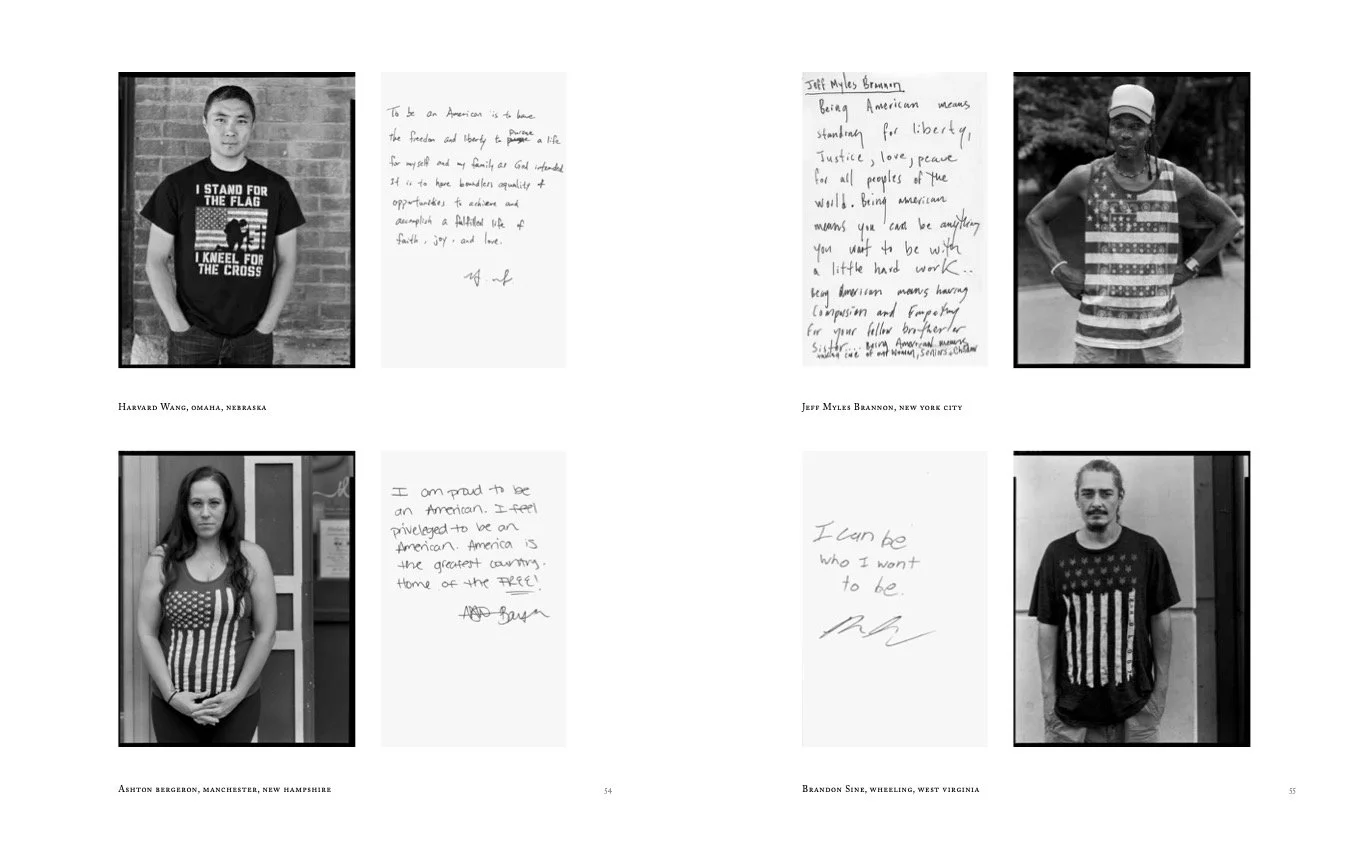 I STAND FOR
THE FLAG
I KNEEL FOR
THE CROSS
To be an American is to have
the freedom and liberty to pursue a life
for myself and my family as God intended
It is to have boundless equality of
opportunities to achieve and
accomplish a fulfilled life of
faith, joy, and love.
HARVARD WANG, OMAHA, NEBRASKA
I am proud to be
an American. I feel
priveleged to be an
American. America is
the greatest country.
Home of the FREE!
ASHTON BERGERON, MANCHESTER, NEW HAMPSHIRE
54
Jeff Myles Brannon
Being American means
standing for liberty,
Justice, love, peace
for all peoples of the
world. Being american
means you can be anything
you want to be with
a little hard work..
Being American means having
Compassion and Empathy
For your fellow brother or
Sister... Being American means
taking care of our women, Seniors, & Children
JEFF MYLES BRANNON, NEW YORK CITY
I can be
who I want
to be.
BRANDON SINE, WHEELING, WEST VIRGINIA
55